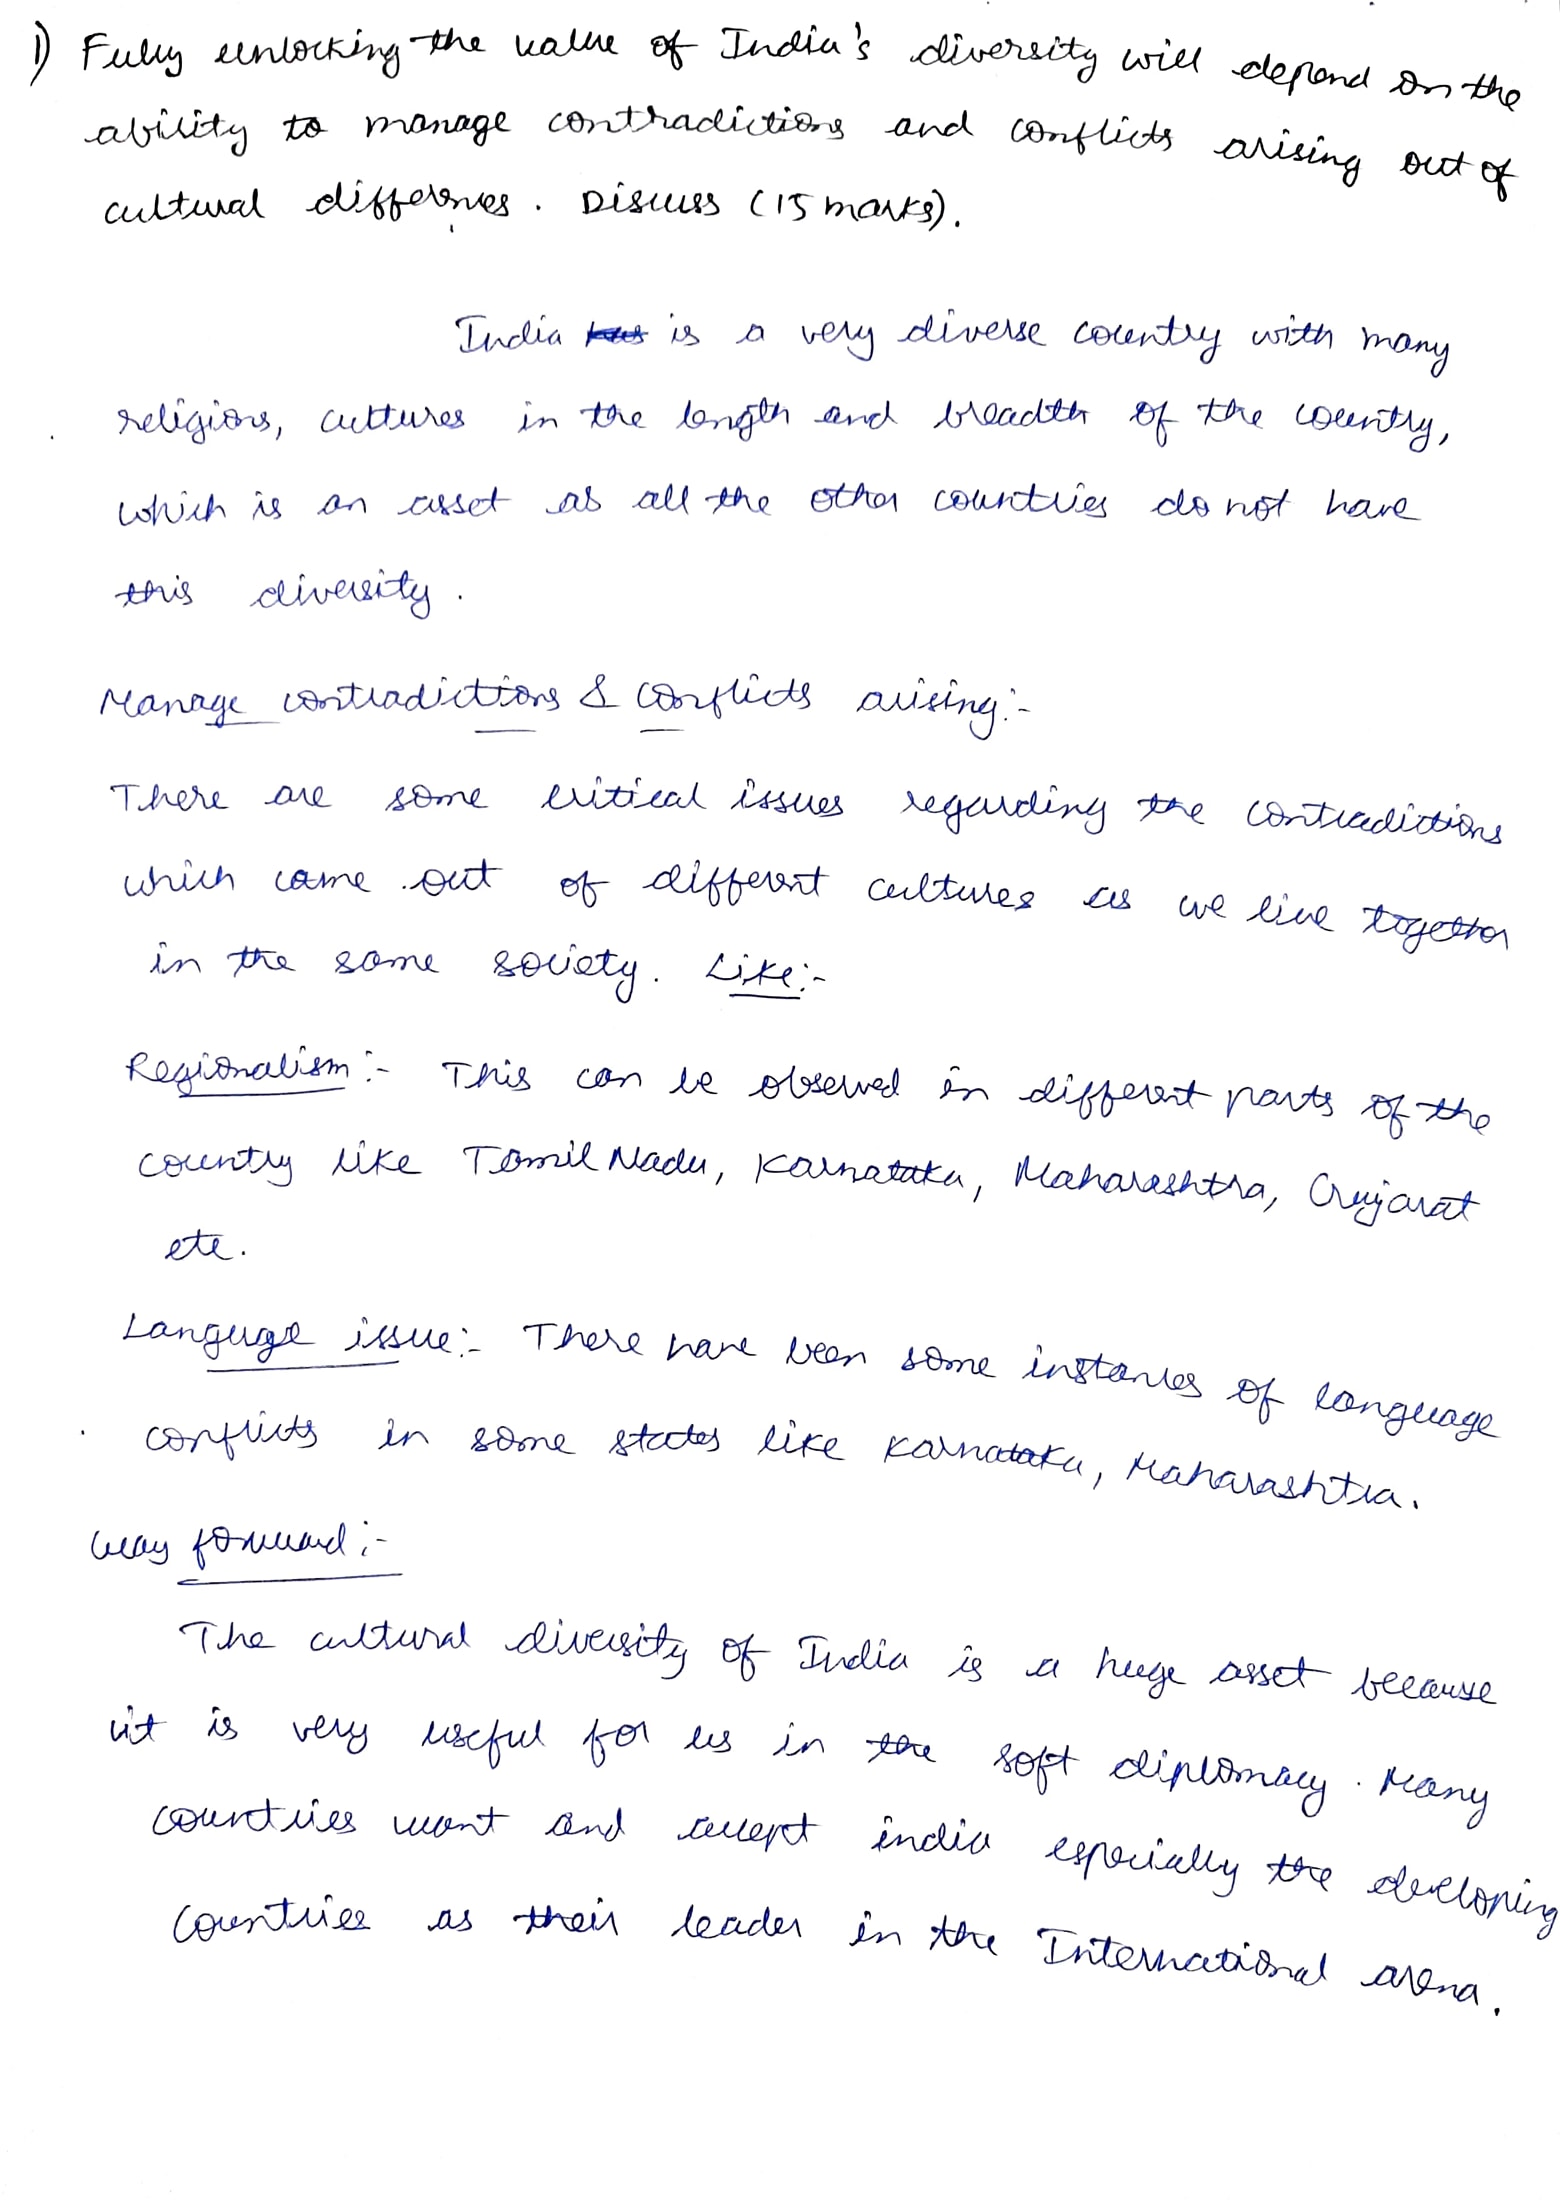 1) Fully unlocking the value of India's diversity will depend on the
ability to manage contradictions and conflicts arising out of
cultural differences. Discuss (15 marks).
India is a very diverse country with many
religions, cultures in the length and breadth of the country,
which is an asset as all the other countries do not have
this diversity.
Manage contradictions & conflicts arising:-
There are some critical issues regarding the contradictions
which came out of different cultures as we live together
in the same society. Like:-
Regionalism:- This can be observed in different parts of the
country like Tamil Nadu, Karnataka, Maharashtra, Gujarat
etc.
Languge issue:- There have been some instances of language
conflicts in some states like Karnataka, Maharashtra.
Way forward:-
The cultural diversity of India is a huge asset because
it is very useful for us in the soft diplomacy. Many
countries want and accept india especially the developing
countries as their leader in the International arena.